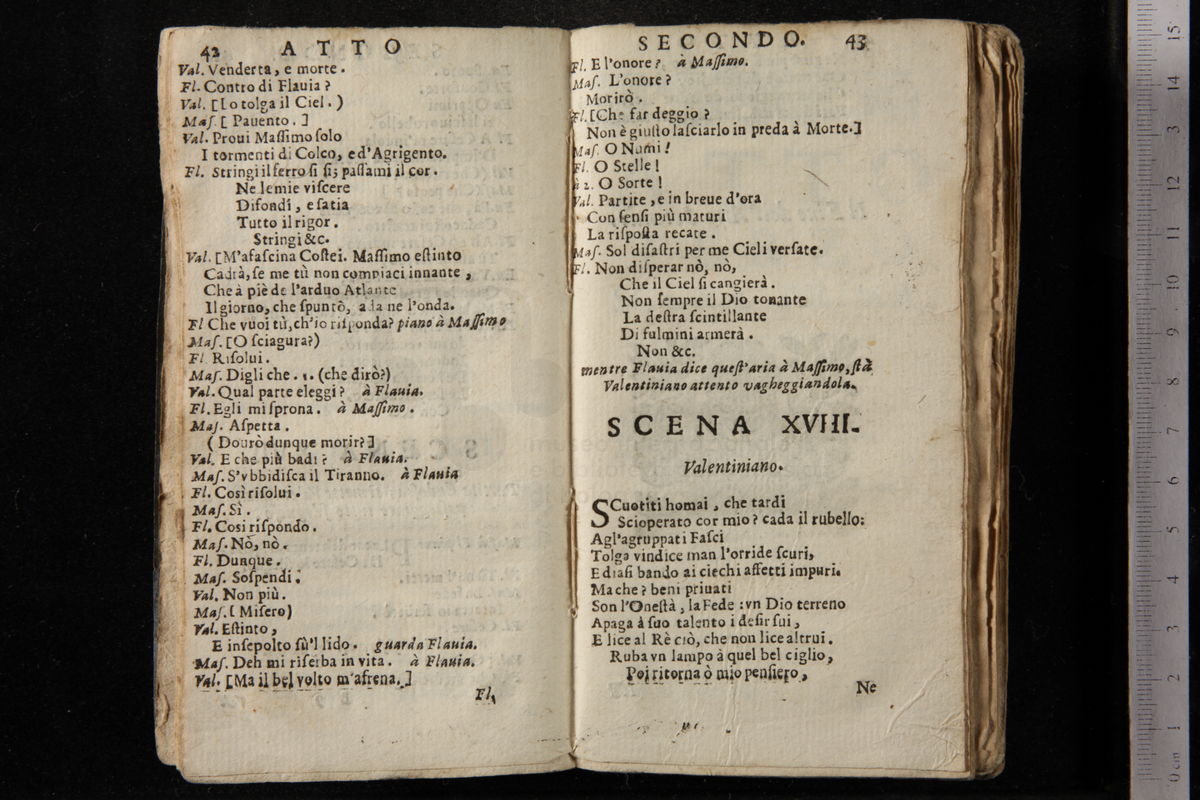 42 ATTO
Val. Venderta, e morte.
Fl. Contro di Flauia?
Val. [Io tolga il Ciel.)
Maſ. [Pauento.]
Val. Proui Maſſimo ſolo
I tormenti di Colco, e d'Agrigento.
Fl. Stringi il ferro ſi ſi; paſſami il cor.
Ne le mie viſcere
Difondi, e ſatia
Tutto il rigor.
Stringi &c.
Val. [M'afaſcina Coſtei. Maſſimo eſtinto
Cadrà, ſe me tù non compiaci innante,
Che à piè de l'arduo Atlante
Il giorno, che ſpuntò, a la ne l'onda.
Fl Che vuoi tù, ch'io riſponda? piano à Maſſimo
Maſ. [O ſciagura?)
Fl. Riſolui.
Maſ. Digli che... (che dirò?)
Val. Qual parte eleggi? à Flauia.
Fl. Egli mi ſprona. à Maſſimo.
Maſ. Aſpetta.
(Dourò dunque morir?]
Val. E che più badi? à Flauia.
Maſ. S'vbbidiſca il Tiranno. à Flauia
Fl. Così riſolui.
Maſ. Sì.
Fl. Cosi riſpondo.
Maſ. Nò, nò.
Fl. Dunque.
Maſ. Soſpendi.
Val. Non più.
Maſ. [Miſero)
Val. Eſtinto,
E inſepolto sù'l lido. guarda Flauia.
Maſ. Deh mi riſerba in vita. à Flauia.
Val. [Ma il bel volto m'afrena.]
Fl,
SECONDO. 43
Fl. E l'onore? à Maſſimo.
Maſ. L'onore?
Morirò.
Fl. [Che far deggio?
Non è giuſto laſciarlo in preda à Morte.]
Maſ. O Numi!
Fl. O Stelle!
à 2. O Sorte!
Val. Partite, e in breue d'ora
Con ſenſi più maturi
La riſpoſta recate.
Maſ. Sol diſaſtri per me Cieli verſate.
Fl. Non diſperar nò, nò,
Che il Ciel ſi cangierà.
Non ſempre il Dio tonante
La deſtra ſcintillante
Di fulmini armerà.
Non &c.
mentre Flauia dice queſt'aria à Maſſimo, ſtà
Valentiniano attento vagheggiandola.
SCENA XVIII.
Valentiniano.
SCuotiti homai, che tardi
Scioperato cor mio? cada il rubello:
Agl'agruppati Faſci
Tolga vindice man l'orride ſcuri,
E diaſi bando ai ciechi affetti impuri.
Ma che? beni priuati
Son l'Oneſtà, la Fede: vn Dio terreno
Apaga à ſuo talento i deſir ſui,
E lice al Rè ciò, che non lice altrui.
Ruba vn lampo à quel bel ciglio,
Poi ritorna ò mio penſiero,
Ne